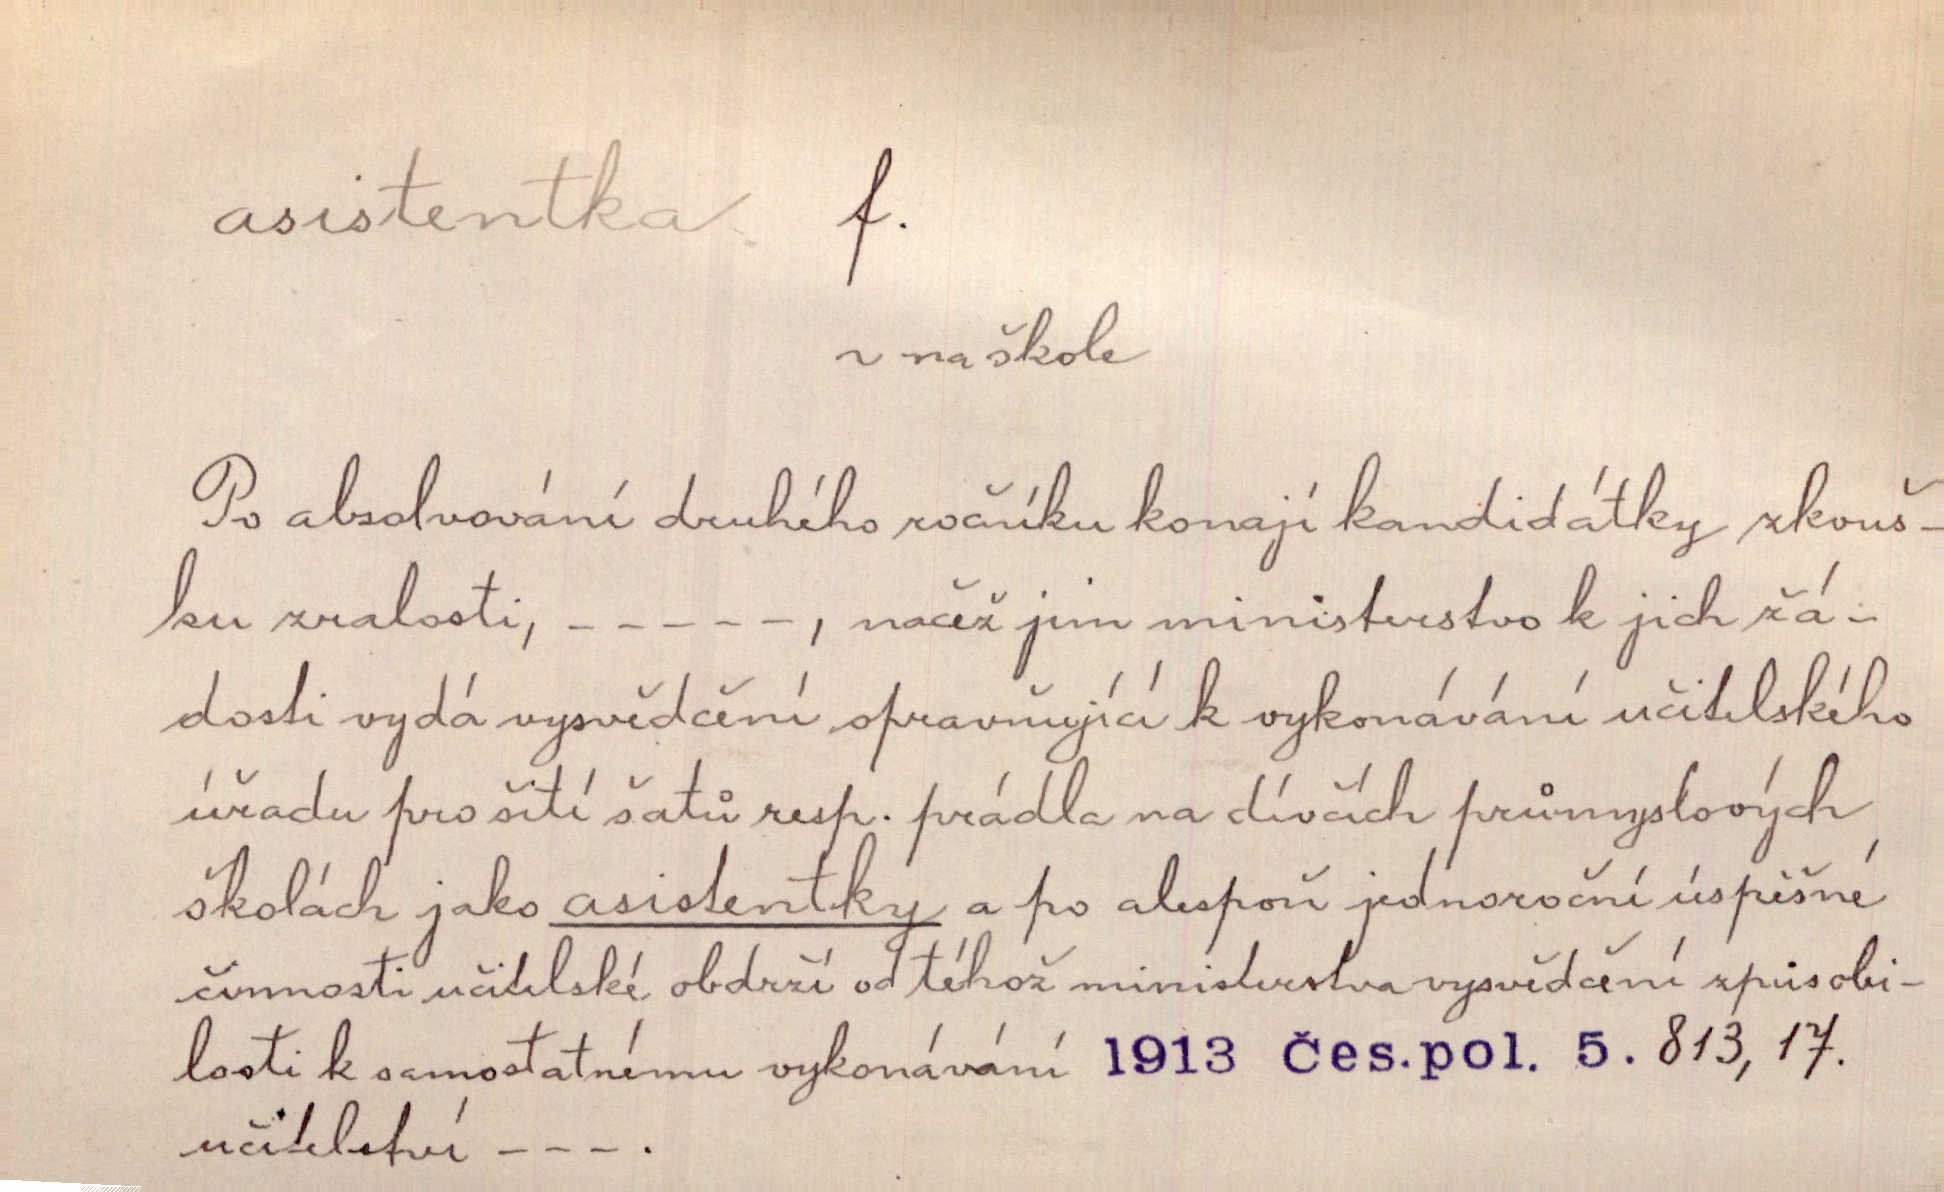 asistentka f.
~ na škole
Po absolvování druhého ročníku konají kandidátky zkouš-
ku zralosti, - - - - -, načež jim ministerstvo k jich žá-
dosti vydá vysvědčení opravňující k vykonávání učitelského
úřadu pro šití šatů resp. prádla na dívčích průmyslových
školách jako asistentky a po alespoň jednoroční úspěšné
činnosti učitelské obdrží od téhož ministerstva vysvědčení způsobi-
losti k samostatnému vykonávání 1913 Čes. pol. 5. 813, 17.
učitelství - - - .